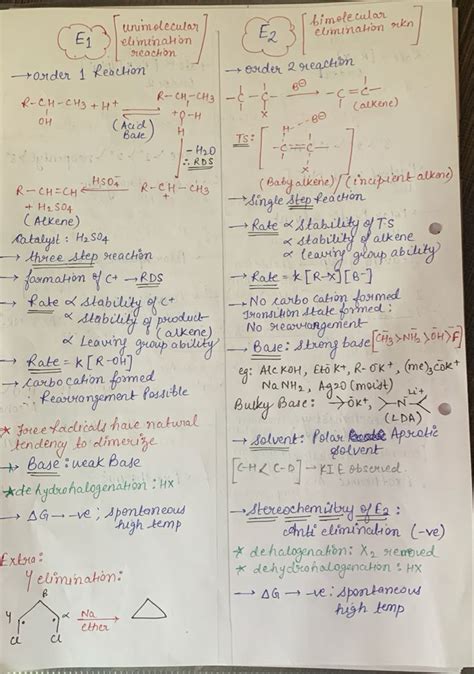 E1
[unimolecular
elimination
reaction]
→ order 1 Reaction
R-CH-CH3 + H+
OH
(Acid
Base)
R-CH-CH3
+O-H
H
-H2O
∴ RDS
R-CH-CH3
+
HSO4-
R-CH=CH
+ H2SO4
(Alkene)
Catalyst: H2SO4
→ three step reaction
→ formation of C+ → RDS
→ Rate ∝ stability of C+
∝ Stability of product
(alkene)
∝ Leaving group ability
→ Rate = k[R-OH]
→ carbocation formed
∴ Rearrangement Possible
* Free Radicals have natural
tendency to dimerize
→ Base: weak Base
* dehydrohalogenation: HX
→ ΔG → -ve; spontaneous
high temp
Extra:
γ elimination:
β
γ
α
Cl
Cl
Na
ether
E2
[bimolecular
elimination rkn]
→ order 2 reaction
-C-C-
H
X
B⊖
-C=C-
(alkene)
TS:
H--B⊖
-C=C-
X
(Baby alkene) / (incipient alkene)
→ Single Step Reaction
→ Rate ∝ Stability of T.S
∝ stability of alkene
∝ leaving group ability
→ Rate = k[R-X][B-]
→ No carbocation formed
Transition state formed:
No rearrangement
→ Base: Strong base [CH3->NH2->OH>F]
eg: Alc KOH, EtOK+, R-OK+, (me)3COK+
NaNH2, Ag2O (moist)
Bulky Base: OK+,
N
Li+
(LDA)
→ Solvent: Polar Aprotic
solvent
[C-H < C-D] → KIE observed.
→ Stereochemistry of E2:
Anti elimination (-ve)
* dehalogenation: X2 removed
* dehydrohalogenation: HX
→ ΔG → -ve: spontaneous
high temp